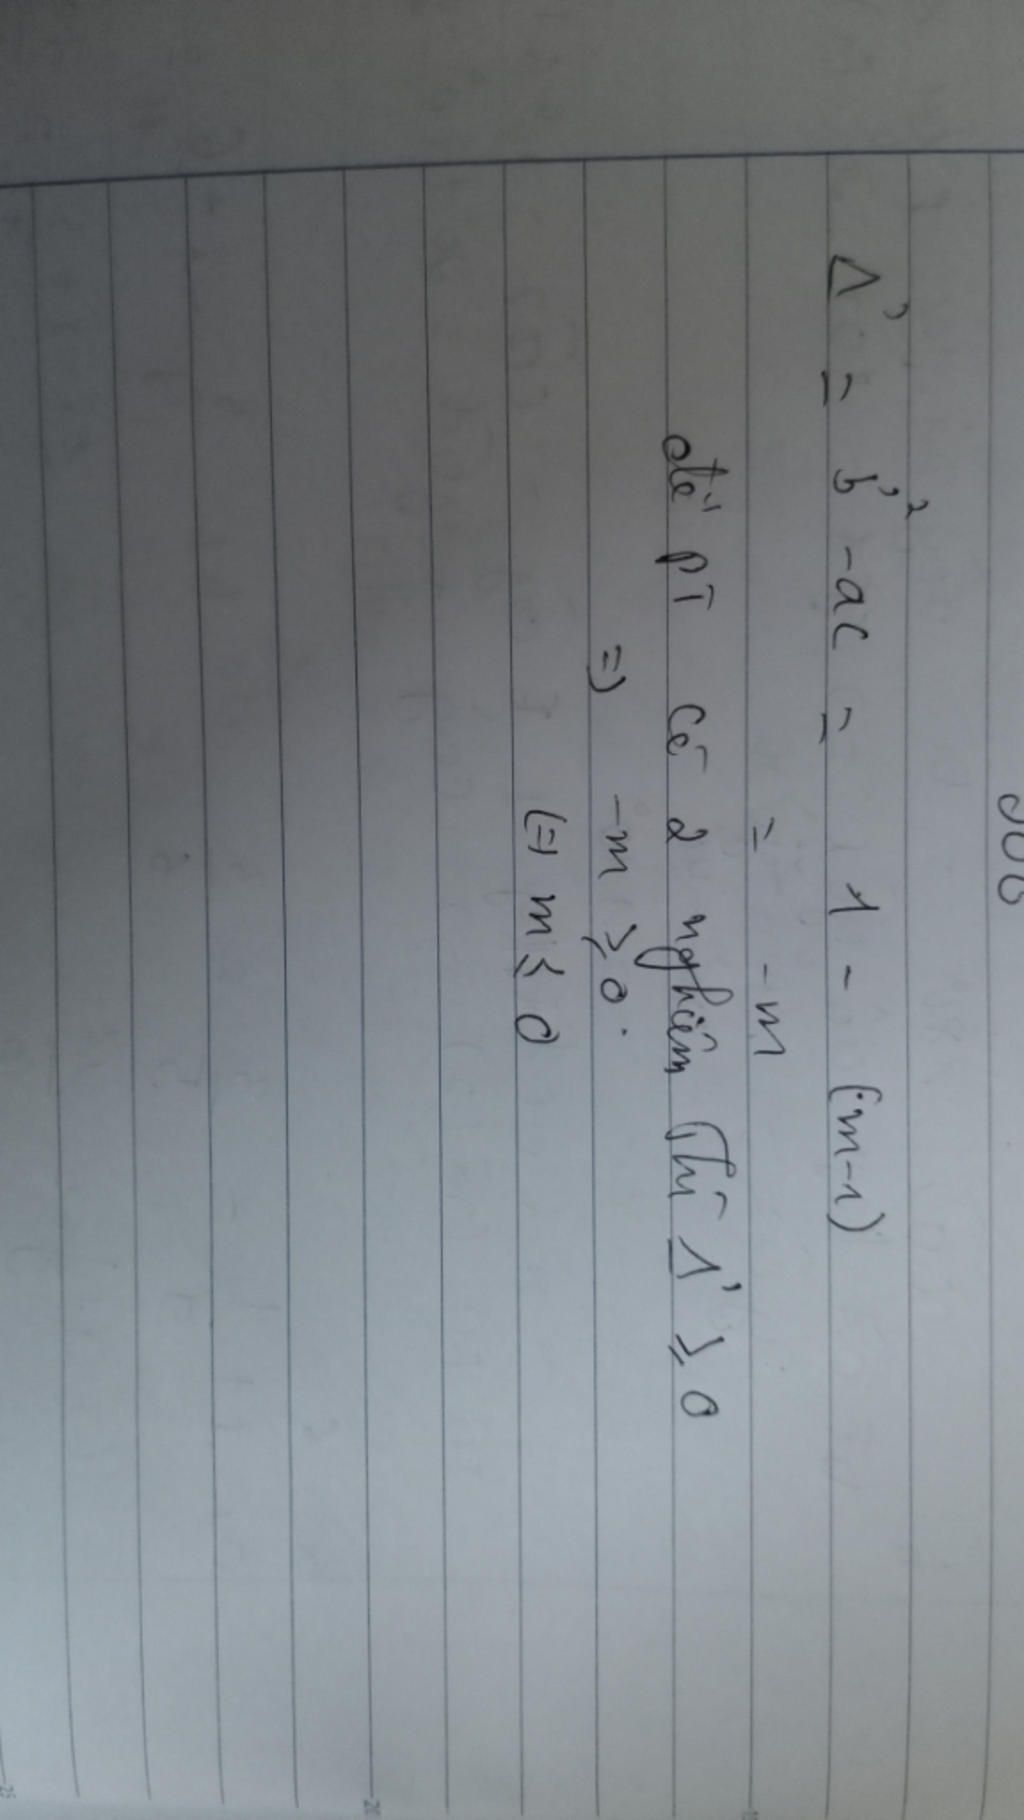 Δ' = b'² - ac = 1 - (m-1)
= -m
để pt có 2 nghiệm thì Δ' ≥ 0
=> -m ≥ 0.
(=) m ≤ 0
20